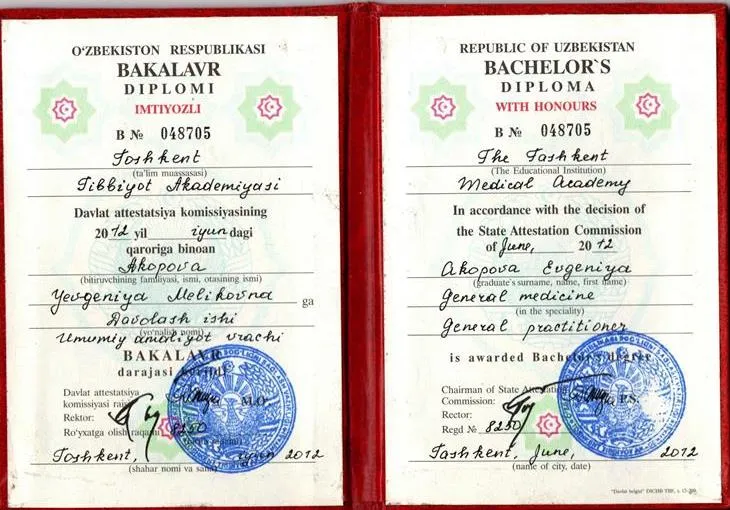 O'ZBEKISTON RESPUBLIKASI
BAKALAVR
DIPLOMI
IMTIYOZLI
B № 048705
Toshkent
(ta'lim muassasasi)
Tibbiyot Akademiyasi
Davlat attestatsiya komissiyasining
2012 yil iyun dagi
qaroriga binoan
Akopova
(bitiruvchining familiyasi, ismi, otasining ismi)
Yevgeniya Melikovna ga
Davolash ishi
(yo'nalish nomi)
Umumiy amaliyot vrachi
BAKALAVR
darajasi berildi
Davlat attestatsiya
komissiyasi raisi
M.O'.
Rektor:
Ro'yxatga olish raqami 8250
Toshkent, iyun 2012
(shahar nomi va sana)
REPUBLIC OF UZBEKISTAN
BACHELOR`S
DIPLOMA
WITH HONOURS
B № 048705
The Tashkent
(The Educational Institution)
Medical Academy
In accordance with the decision of
the State Attestation Commission
of June, 2012
Akopova Evgeniya
(graduate's surname, name, first name)
General medicine
(in the speciality)
General practitioner
is awarded Bachelor's degree
Chairman of State Attestation
Commission: P.S.
Rector:
Regd № 8250
Tashkent, June, 2012
(name of city, date)